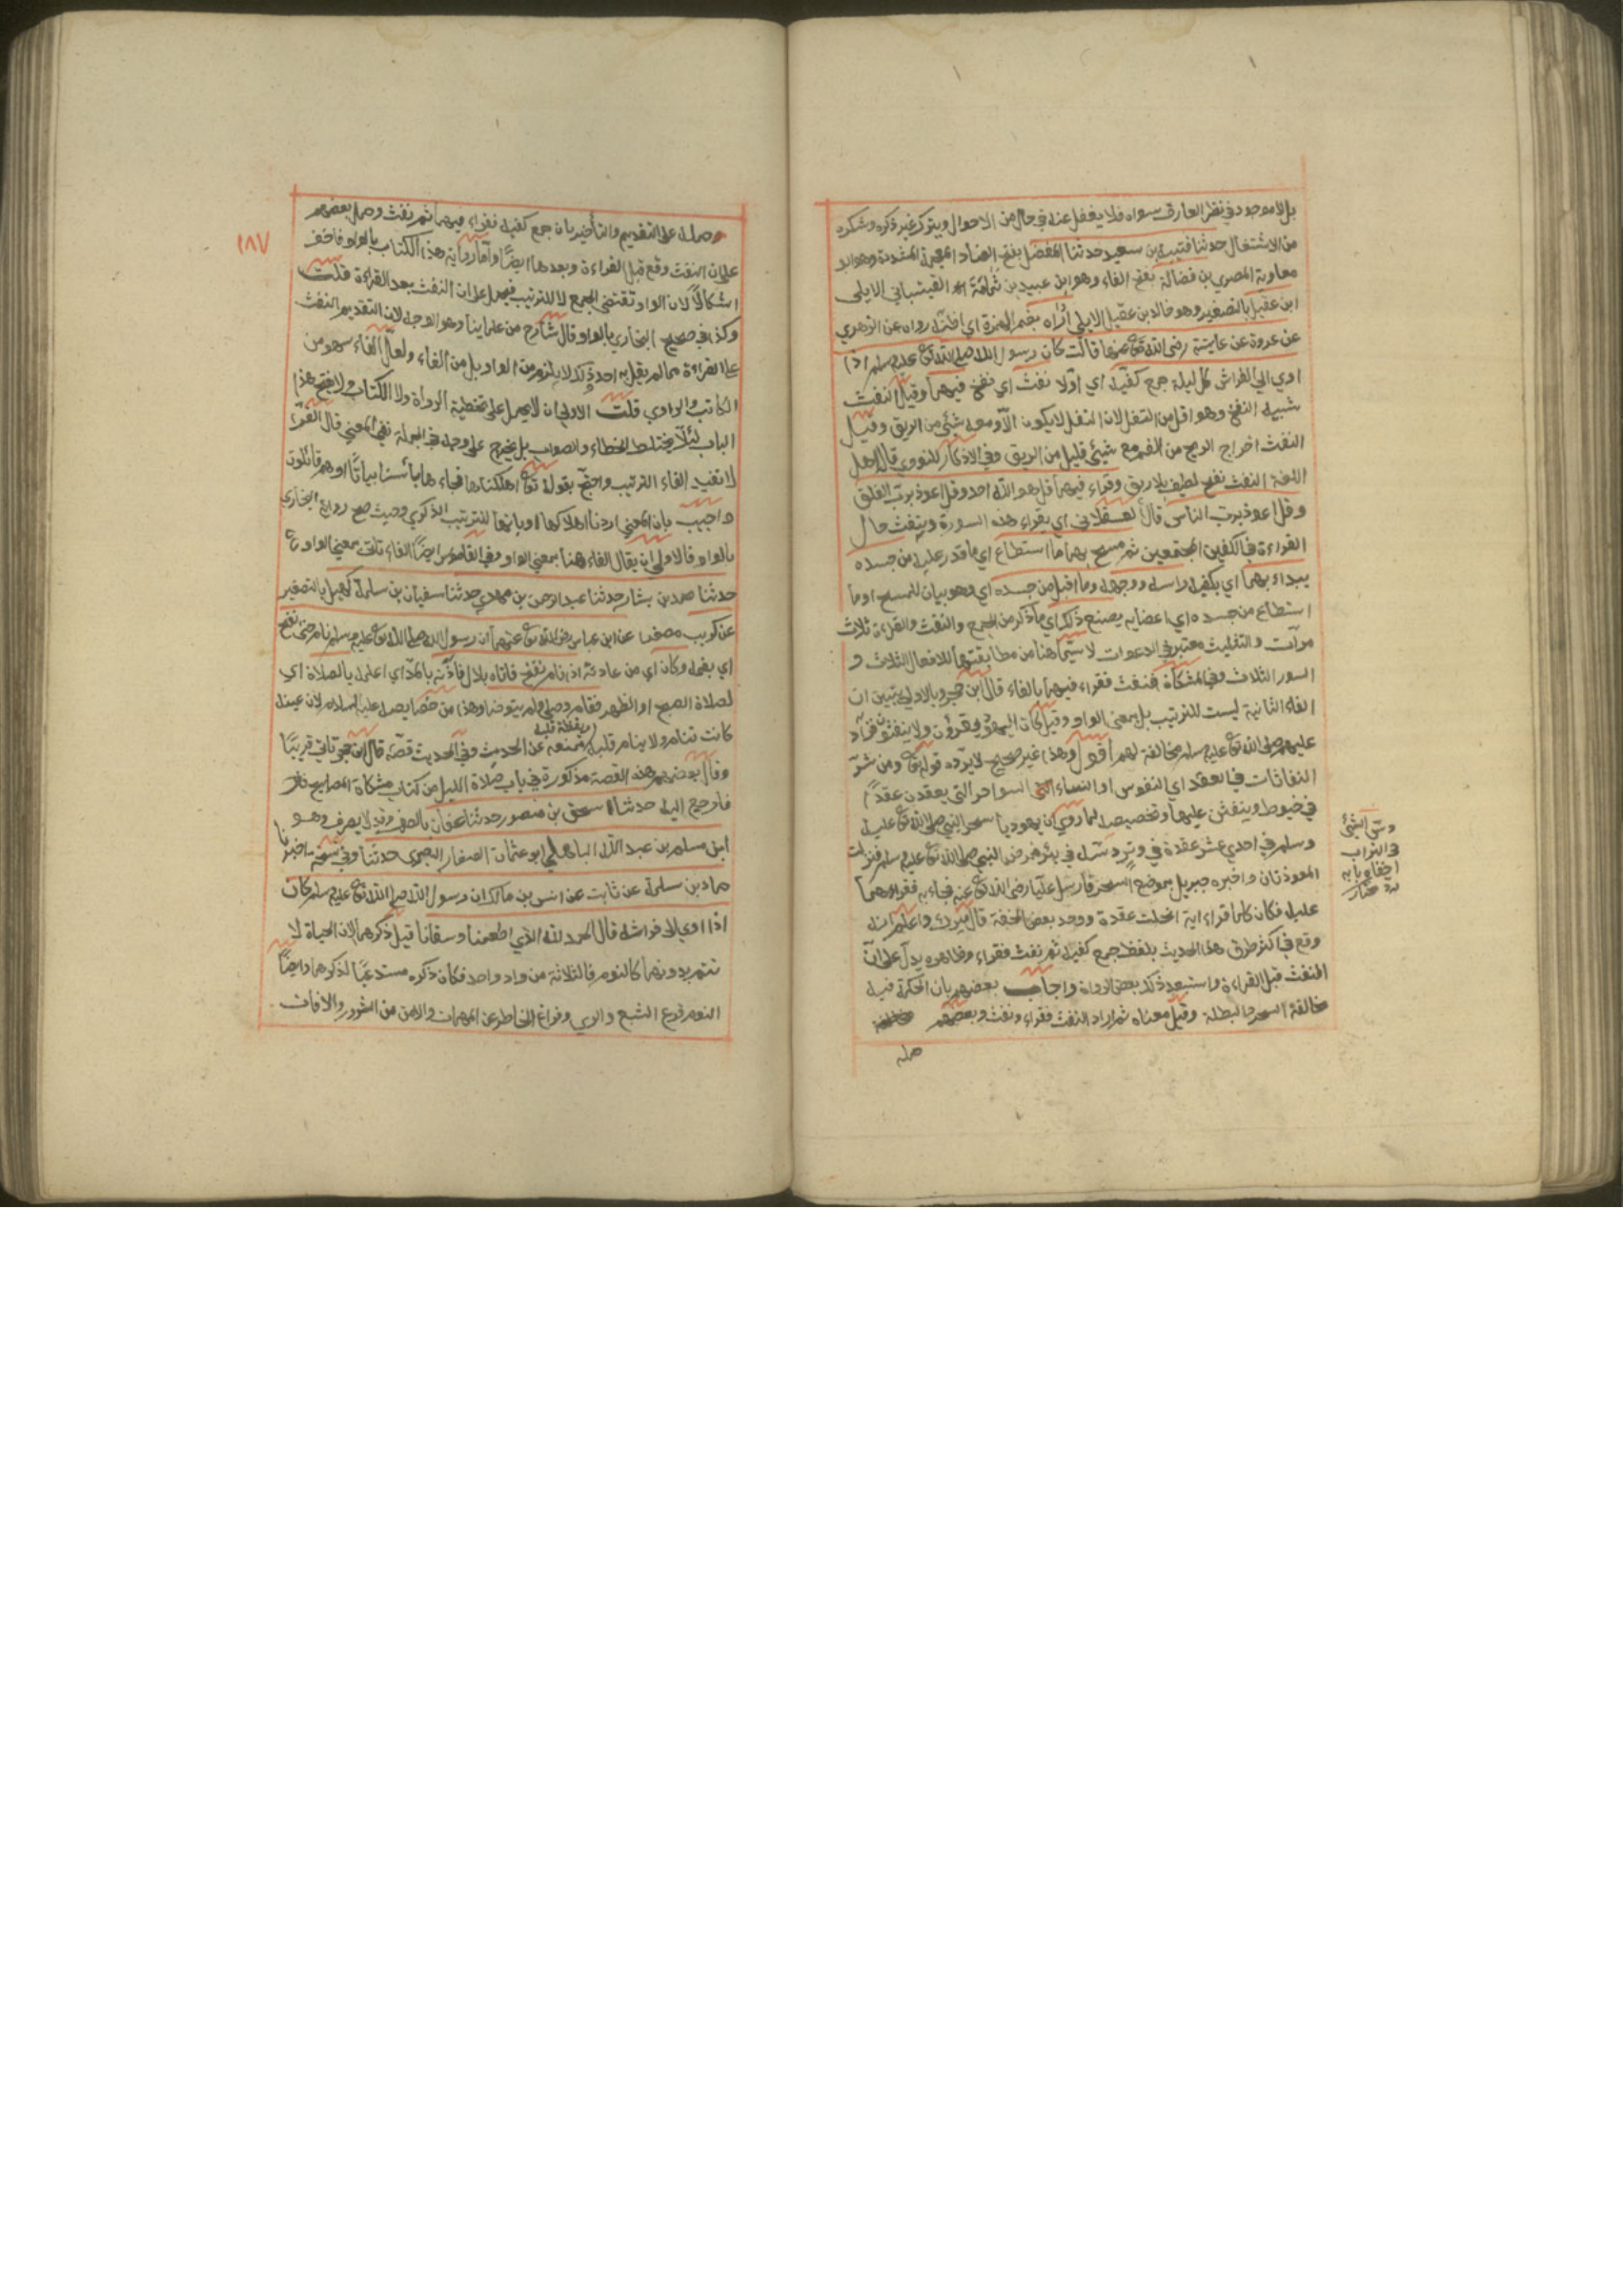 بل لا موجود في نظر العارف سواه فلا يغفل عنه في حال من الاحوال ويترك غير ذكره وشكره
من الاشتغال حدثنا قتيبة بن سعيد حدثنا المفضل بفتح الضاد المعجمة المشددة وهو ابو
معاوية المصري بن فضالة بفتح الفاء وهو ابن عبيد بن ثمامة القيتباني الايلى
ابن عقيل بالتصغير وهو خالد بن عقيل الايلي أراه بضم الهمزة اي اظنه رواه عن الزهري
عن عروة عن عايشة رضي الله تع عنها قالت كان رسول الله صلى الله تع عليه وسلم اذا
اوي الي الفراش كل ليلة جمع كفيه اي اوّلا نفث اي نفخ فيهما وقيل النفث
شبيه النفخ وهو اقل من التفل لان التفل لا يكون الا ومعه شئ من الريق وقيل
النفث اخراج الريح من الفم مع شيئ قليل من الريق وفي الاذكار للنووي قال اهل
اللغة النفث نفخ لطيف بلا ريق وقراء فيهما قل هو الله احد وقل اعوذ برب الفلق
وقل اعوذ برب الناس قال العسقلاني اي يقراء هذه السورة وينفث حال
القراءة في الكفين المجتمعين ثم مسح بهما ما استطاع اي ما قدر عليه من جسده
يبداء بهما اي بكفيه راسه ووجهه وما اقبل من جسده اي وهو بيان للمسح او ما
استطاع من جسده اي اعضايه يصنع ذلك اي ما ذكر من الجمع والنفث والقراءة ثلاث
مرات والتثليث معتبر في الدعوات لا سيّما هنا من مطابقتهما للافعال الثلاث و
السور الثلاث وفي المشكاة فنفث فقراء فيهما بالفاء قال ابن حجر وبالاولي يتبين ان
الفاء الثانية ليست للترتيب بل بمعنى الواو وقيل كان اليهود يقرؤن ولا ينفثون فزاد
عليهم صلى الله تع عليه وسلم مخالفة لهم اقول وهذا غير صحيح لا يردّه قوله تع ومن شرّ
النفاثات في العقد اي النفوس او النساء السواحر التي يعقدن عقدا
في خيوط وينفثن عليها وتخصيصه لما روي ان يهوديا سحر النبي صلى الله تع عليه
وسلم في احدي عشر عقدة في وتر دسّه في بئر فمرض النبي صلى الله تع عليه وسلم فنزلت
المعوذتان واخبره جبريل بموضع السحر فارسل عليّا رضى الله تع عنه فجاء به فقراءهما
عليه فكان كلما قراء اية انحلت عقدة ووجد بعض الخفة قال ميرك واعلم انه
وقع في اكثر طرق هذا الحديث بلفظ جمع كفيه ثم نفث فقراء وظاهره يدل على ان
النفث قبل القراءة واستبعد ذلك بعض الرواة واجاب بعضهم بان الحكمة فيه
مخالفة السحر والبطلة وقيل معناه ثم اراد النفث فقراء ونفث وبعضهم
حمله
دسّ الشئ
في التراب
اخفاه وبابه
ردّ مختار
١٨٧
وحمله على التقديم والتأخير بان جمع كفيه فقراء فيهما ثم نفث وحمل بعضهم
على ان النفث وقع قبل القراءة وبعدها ايضا وامّا رواية هذا الكتاب بالواو فاخف
اشكالا لان الواو تقتضي الجمع لا للترتيب فيحمل على ان النفث بعد القراءة قلت
وكذا في صحيح البخاري بالواو قال شارح من علمائنا وهو الوجه لان التقديم النفث
على القراءة مما لم يقل به احد وذلك لا يلزم من الواو بل من الفاء ولعل الفاء سهو من
الكاتب والراوي قلت الاولي ان لا يحمل على تخطئة الرواة ولا الكتاب ولا يفتح هذا
الباب لئلّا يختلط الخطاء والصواب بل يخرج على وجه في الجملة نفي المعني قال الفرّا
لا تفيد الفاء الترتيب واحتج بقوله تع اهلكناها فجاءها بأسنا بياتا او هم قائلون
واجيب بان المعني اردنا اهلاكها او بانها للترتيب الذكري وحيث صح رواية البخاري
بالواو فالاولي ان يقال الفاء هنا بمعني الواو وفي القاموس ايضا الفاء تاتي بمعني الواو
حدثنا محمد بن بشار حدثنا عبد الرحمن بن مهدي حدثنا سفيان بن سلمة كهيل بالتصغير
عن كريب مصغرا عن ابن عباس رضي الله تع عنهما ان رسول الله صلى الله تع عليه وسلم نام حتى نفخ
اي بفمه وكان اي من عادته اذا نام نفخ فاتاه بلال فآذنه بالمدّ اي اعلمه بالصلاة اي
لصلاة الصبح او الظهر فقام وصلى ولم يتوضا وهذا من خصايصه عليه السلام لان عينه
كانت تنام ولا ينام قلبه ويقظة قلبه تمنعه عن الحديث وفي الحديث قصّة قال ابن حجر تاتي قريبًا
وقال بعضهم هذه القصة مذكورة في باب صلاة الليل من كتاب مشكاة المصابيح
فارجع اليه حدثنا اسحق بن منصور حدثنا عفان بالصرف وقد لا يصرف وهو
ابن مسلم بن عبد الله الباهلي ابو عثمان الصفار البصري حدثنا وفي نسخة اخبرنا
حماد بن سلمة عن ثابت عن انس بن مالك ان رسول الله صلى الله تع عليه وسلم كان
اذا اوي الى فراشه قال الحمد لله الذي اطعمنا وسقانا قيل ذكرهما لان الحياة لا
تتم بدونهما كالنوم فالثلاثة من واد واحد فكان ذكره مستدعيًا لذكرهما وايضًا
النوم فرع الشبع والري وفراغ الخاطر عن المهمات والامن من الشرور والافات